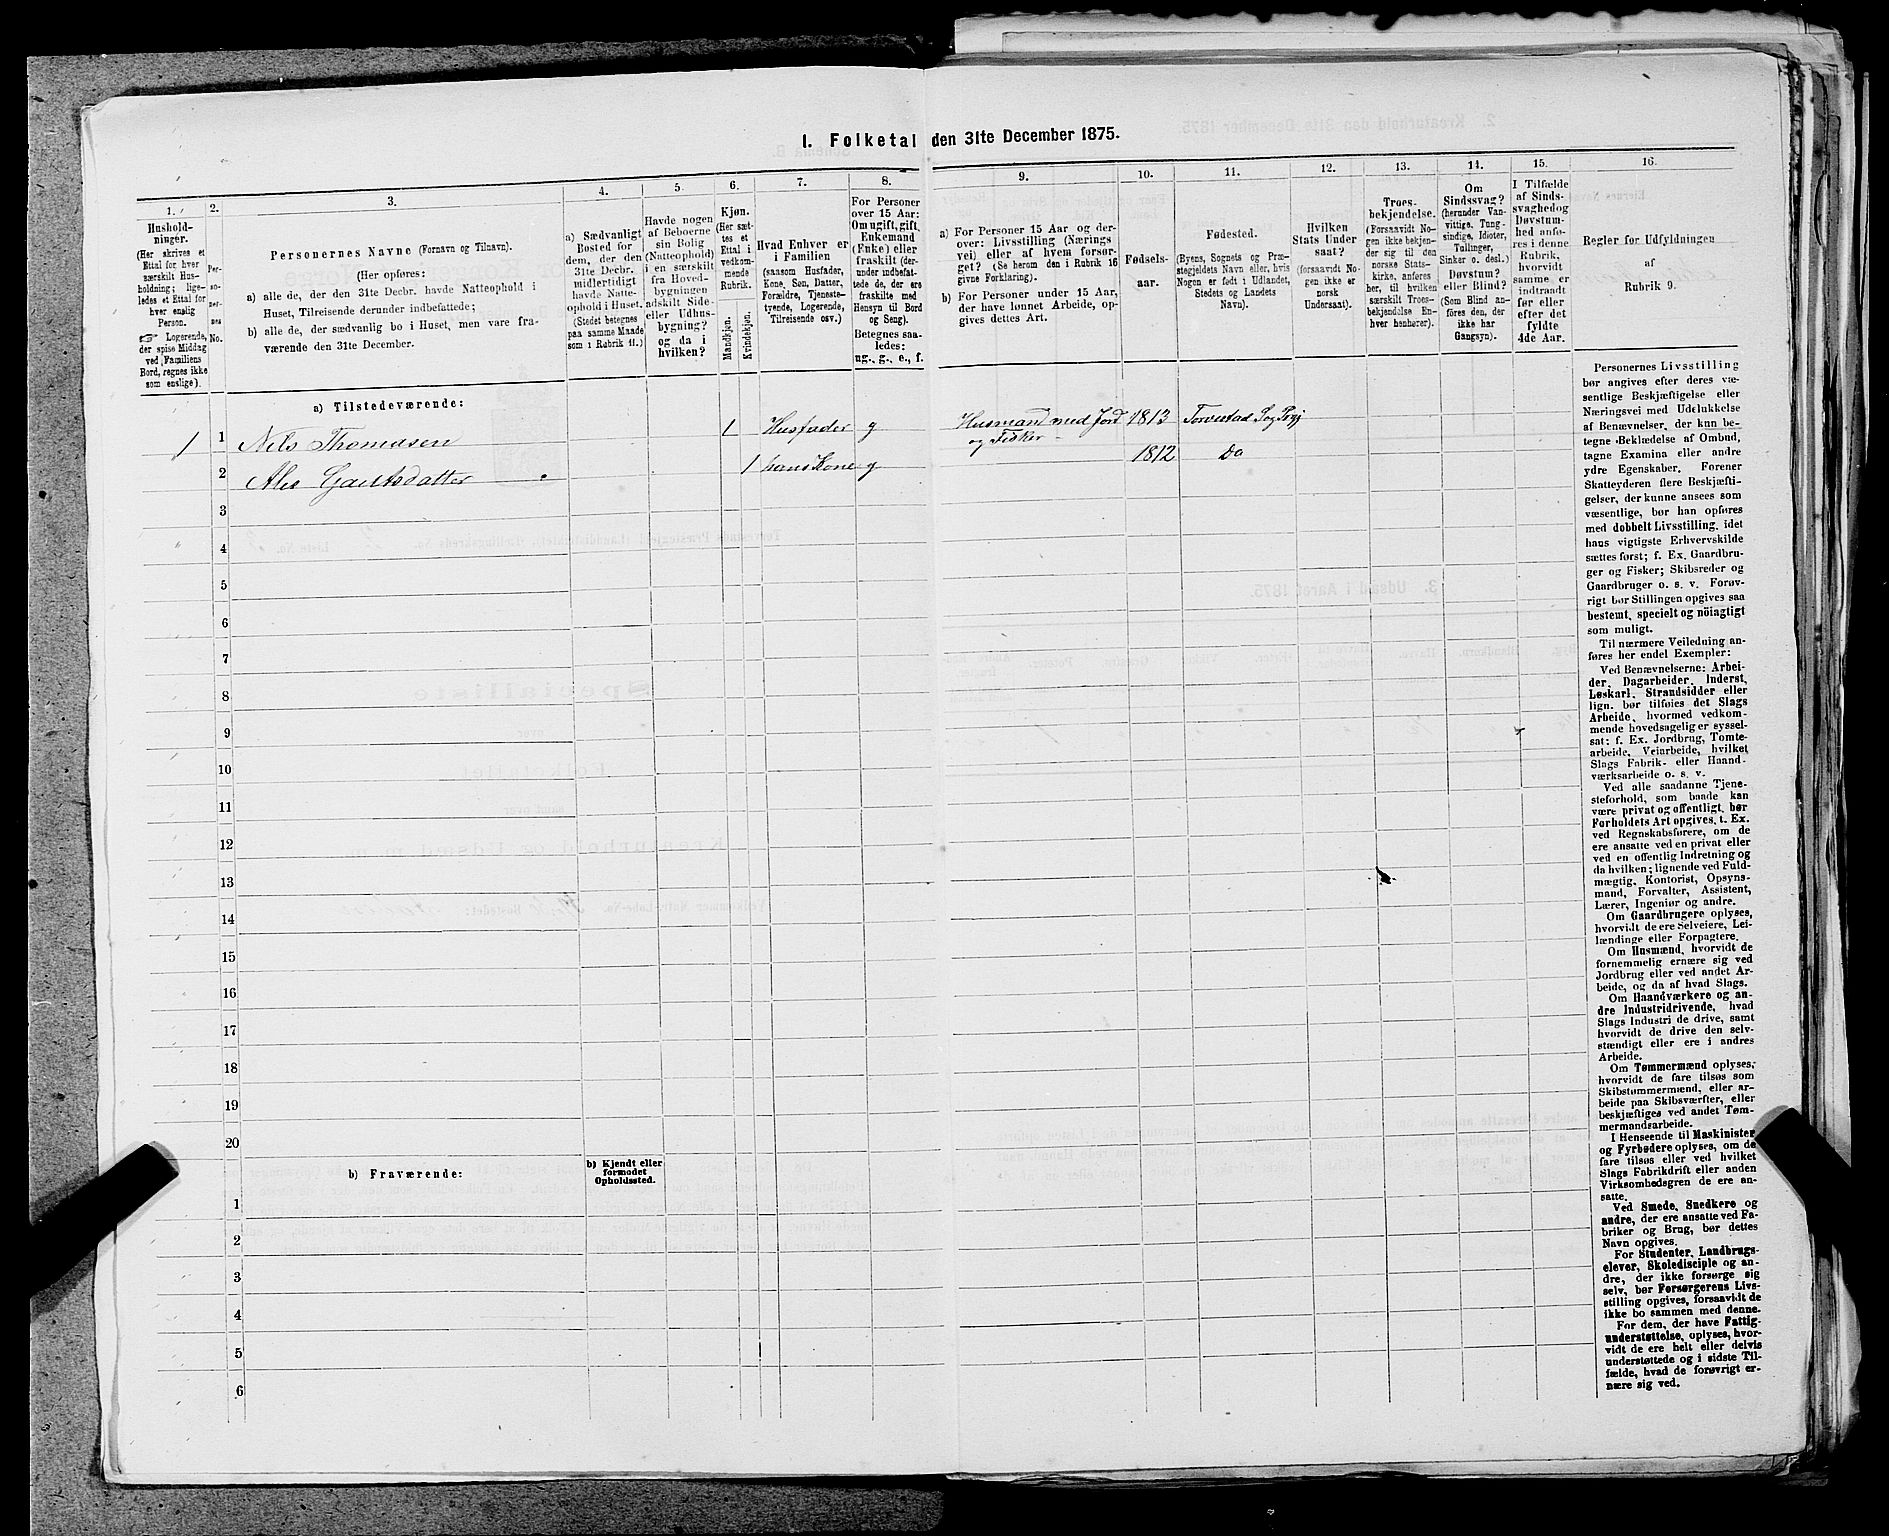 I. Folketal den 31te December 1875.
1.
2.
3.
4.
5.
6.
7.
8.
9.
10.
11.
12.
13.
14.
15.
16.
Hushold-
ninger.
(Her skrives et
Ettal for hver
særskilt Hus-
holdning; lige-
ledes et Ettal for
hver enslig
Person.
☞ Logerende,
der spise Middag
ved Familiens
Bord, regnes ikke
som enslige).
Per-
so-
ner-
nes
No.
Personernes Navne (Fornavn og Tilnavn).
(Her opføres:
a) alle de, der den 31te Decbr. havde Natteophold i
Huset, Tilreisende derunder indbefattede;
b) alle de, der sædvanlig bo i Huset, men vare fra-
værende den 31te December.
a) Sædvanligt
Bosted for
dem, der den
31te Decbr.
midlertidigt
havde Natte-
ophold i Huset.
(Stedet betegnes
paa samme Maade
som i Rubrik 11.)
Havde nogen
af Beboerne
sin Bolig
(Natteophold)
i en særskilt
fra Hoved-
bygningen
adskilt Side-
eller Udhus-
bygning?
og da i
hvilken?
Kjøn.
(Her sæt-
tes et
Ettal i
vedkom-
mende
Rubrik.
Mandkjøn.
Kvindekjøn.
Hvad Enhver er
i Familien
(saasom Husfader,
Kone, Søn, Datter,
Forældre, Tjeneste-
tyende, Logerende,
Tilreisende osv.)
For Personer
over 15 Aar:
Om ugift, gift,
Enkemand
(Enke) eller
fraskilt (der-
under indbefat-
tede de, der ere
fraskilte med
Hensyn til Bord
og Seng).
Betegnes saa-
ledes:
ug., g., e., f.
a) For Personer 15 Aar og der-
over: Livsstilling (Nærings
vei) eller af hvem forsør-
get? (Se herom den i Rubrik 16
givne Forklaring).
b) For Personer under 15 Aar,
der have lønnet Arbeide, op-
gives dettes Art.
Fødsels-
aar.
Fødested.
(Byens, Sognets og Præ-
stegjeldets Navn eller, hvis
Nogen er født i Udlandet,
Stedets og Landets
Navn).
Hvilken
Stats Under
saat?
(forsaavidt No-
gen ikke er
norsk
Undersaat).
Troes-
bekjendelse.
(Forsaavidt No-
gen ikke bekjen-
der sig til den
norske Stats-
kirke, anføres
her, til hvilken
særskilt Troes-
bekjendelse En-
hver henhører).
Om
Sindssvag?
(herunder Van-
vittige, Tung-
sindige, Idioter,
Tullinger,
Sinker o. desl.)
Døvstum?
eller Blind?
(Som Blind an-
føres den, der
ikke har
Gangsyn).
I Tilfælde
af Sinds-
svaghed og
Døvstum-
hed anfø-
res i denne
Rubrik,
hvorvidt
samme er
indtraadt
før eller
efter det
fyldte
4de Aar.
Regler for Udfyldningen
af
Rubrik 9.
a) Tilstedeværende:
1 1 Nils Thomasen 1 Husfader g Husmand med Jord 1813 Torvestad Sog Prgj
og Fisker
2 Ales Gautsdatter 1 hans Kone g 1812 Do
3
4
5
6
7
8
9
10
11
12
13
14
15
16
17
18
19
20
b) Fraværende:
b) Kjendt eller
formodet
Opholdssted.
1
2
3
4
5
6
Personernes Livsstilling
bør angives efter deres væ-
sentlige Beskjæftigelse eller
Næringsvei med Udelukkelse
af Benævnelser, der kun be-
tegne Beklædelse af Ombud,
tagne Examina eller andre
ydre Egenskaber. Forener
Skatteyderen flere Beskjæfti-
gelser, der kunne ansees som
væsentlige, bør han opføres
med dobbelt Livsstilling, idet
hans vigtigste Erhvervskilde
sættes først; f. Ex. Gaardbru-
ger og Fisker; Skibsreder og
Gaardbruger o. s. v. Forøv-
rigt bør Stillingen opgives saa
bestemt, specielt og nöiagtigt
som muligt.
Til nærmere Veiledning an-
føres her endel Exempler:
Ved Benævnelserne: Arbei-
der, Dagarbeider, Inderst,
Løskarl, Strandsidder eller
lign. bør tilføies det Slags
Arbeide, hvormed vedkom-
mende hovedsagelig er syssel-
sat: f. Ex. Jordbrug, Tomte-
arbeide, Veiarbeide, hvilket
Slags Fabrik- eller Haand-
værksarbeide o. s. v.
Ved alle saadanne Tjene-
steforhold, som baade kan
være privat og offentligt, bør
Forholdets Art opgives, t. Ex.
ved Regnskabsførere, om de
ere ansatte ved en privat eller
ved en offentlig Indretning og
da hvilken; lignende ved Fuld-
mægtig, Kontorist, Opsyns-
mand, Forvalter, Assistent,
Lærer, Ingeniør og andre.
Om Gaardbrugere oplyses,
hvorvidt de ere Selveiere, Lei-
lændinge eller Forpagtere.
Om Husmænd, hvorvidt de
fornemmelig ernære sig ved
Jordbrug eller ved andet Ar-
beide, og da af hvad Slags.
Om Haandværkere og an-
dre Industridrivende, hvad
Slags Industri de drive, samt
hvorvidt de drive den selv-
stændigt eller ere i andres
Arbeide.
Om Tømmermænd oplyses,
hvorvidt de fare tilsøs som
Skibstømmermænd, eller ar-
beide paa Skibsværfter, eller
beskjæftiges ved andet Tøm-
mermandsarbeide.
I Henseende til Maskinister
og Fyrbødere oplyses, om de
fare tilsøs eller ved hvilket
Slags Fabrikdrift eller anden
Virksomhedsgren de ere an-
satte.
Ved Smede, Snedkere og
andre, der ere ansatte ved Fa-
briker og Brug, bør dettes
Navn opgives.
For Studenter, Landbrugs-
elever, Skoledisciple og an-
dre, der ikke forsørge sig
selv, bør Forsørgerens Livs-
stilling opgives, forsaavidt de
ikke bo sammen med denne.
For dem, der have Fattig-
understøttelse, oplyses, hvor-
vidt de ere helt eller delvis
understøttede og i sidste Til-
fælde, hvad de forøvrigt er-
nære sig ved.